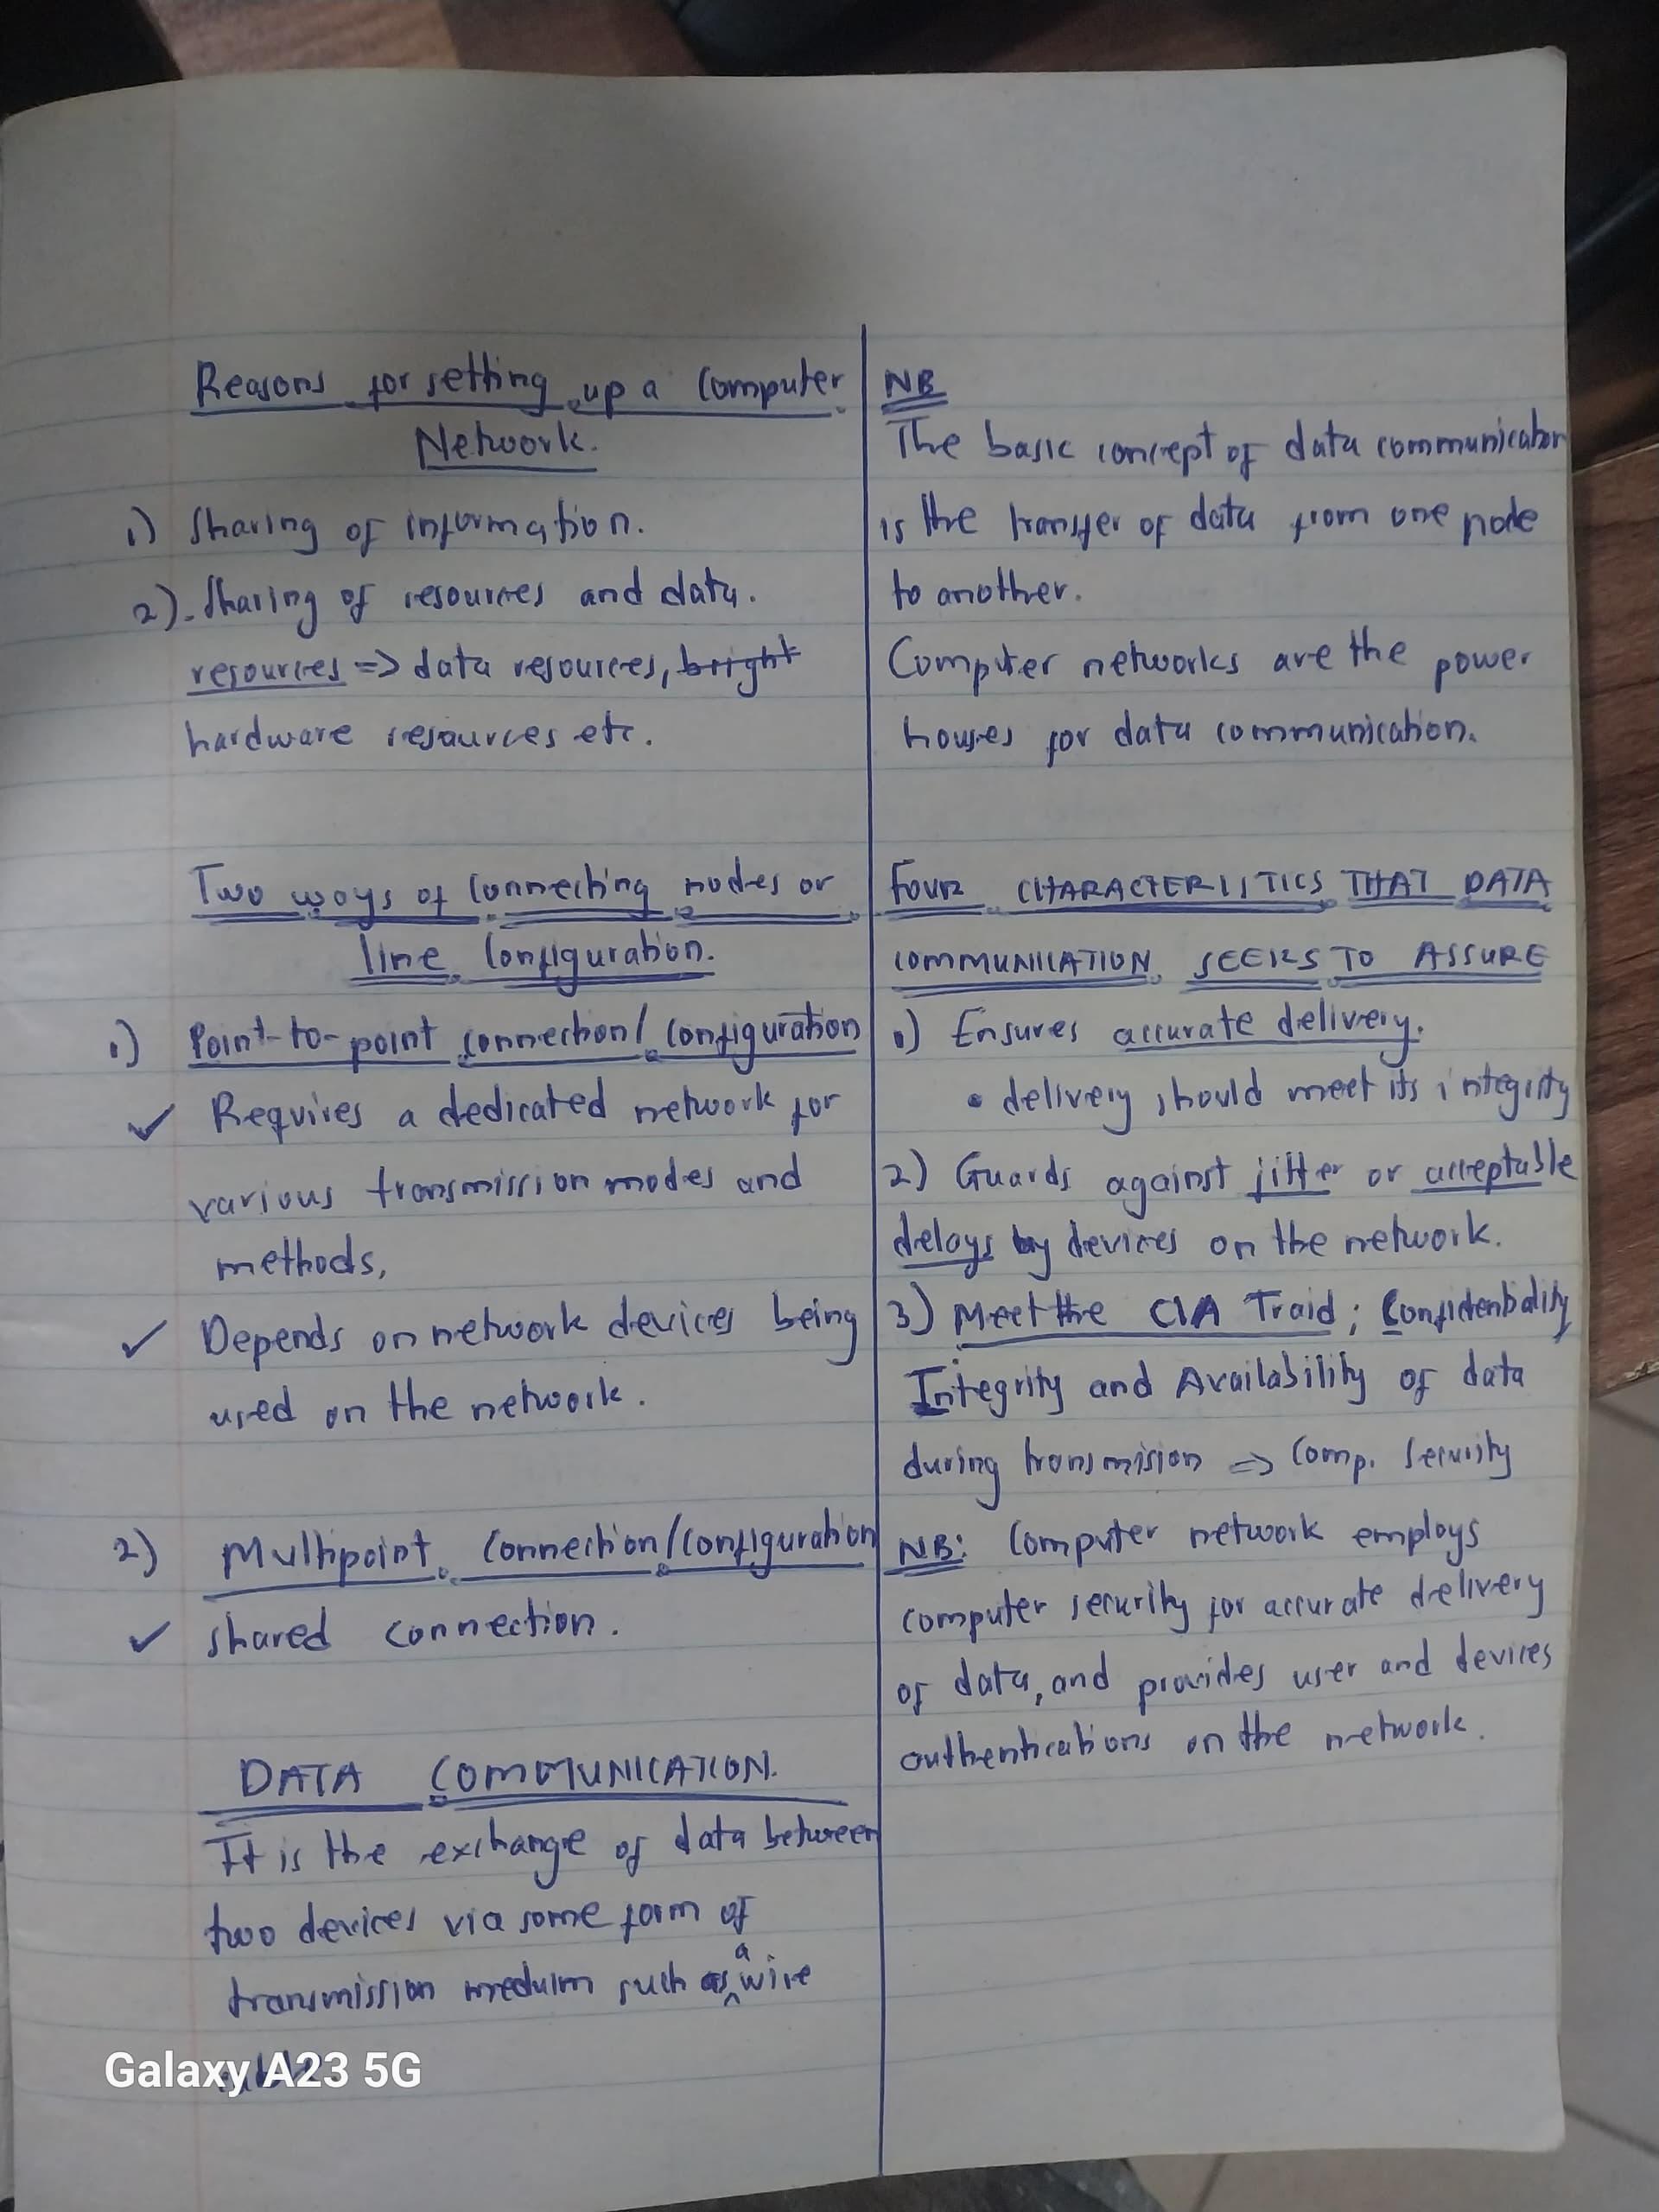 Reasons for setting up a Computer
Network.
1) Sharing of information.
2). Sharing of resources and data.
resources => data resources, bright
hardware resources etc.
Two ways of connecting nodes or
line configuration.
1) Point-to-point connection/configuration
✓ Requires a dedicated network for
various transmission modes and
methods,
✓ Depends on network devices being
used on the network.
2) Multipoint Connection/Configuration
✓ shared connection.
DATA COMMUNICATION.
It is the exchange of data between
two devices via some form of
transmission meduim such as a wire
NB
The basic concept of data communication
is the transfer of data from one node
to another.
Computer networks are the power
houses for data communication.
FOUR CHARACTERISTICS THAT DATA
COMMUNICATION SEEKS TO ASSURE
1) Ensures accurate delivery.
• delivery should meet its integrity
2) Guards against jitter or acceptable
delays by devices on the network.
3) Meet the CIA Traid; Confidentiality
Integrity and Availability of data
during transmision => Comp. Security
NB: Computer network employs
computer security for accurate delivery
of data, and provides user and devices
authentications on the network.
Galaxy A23 5G